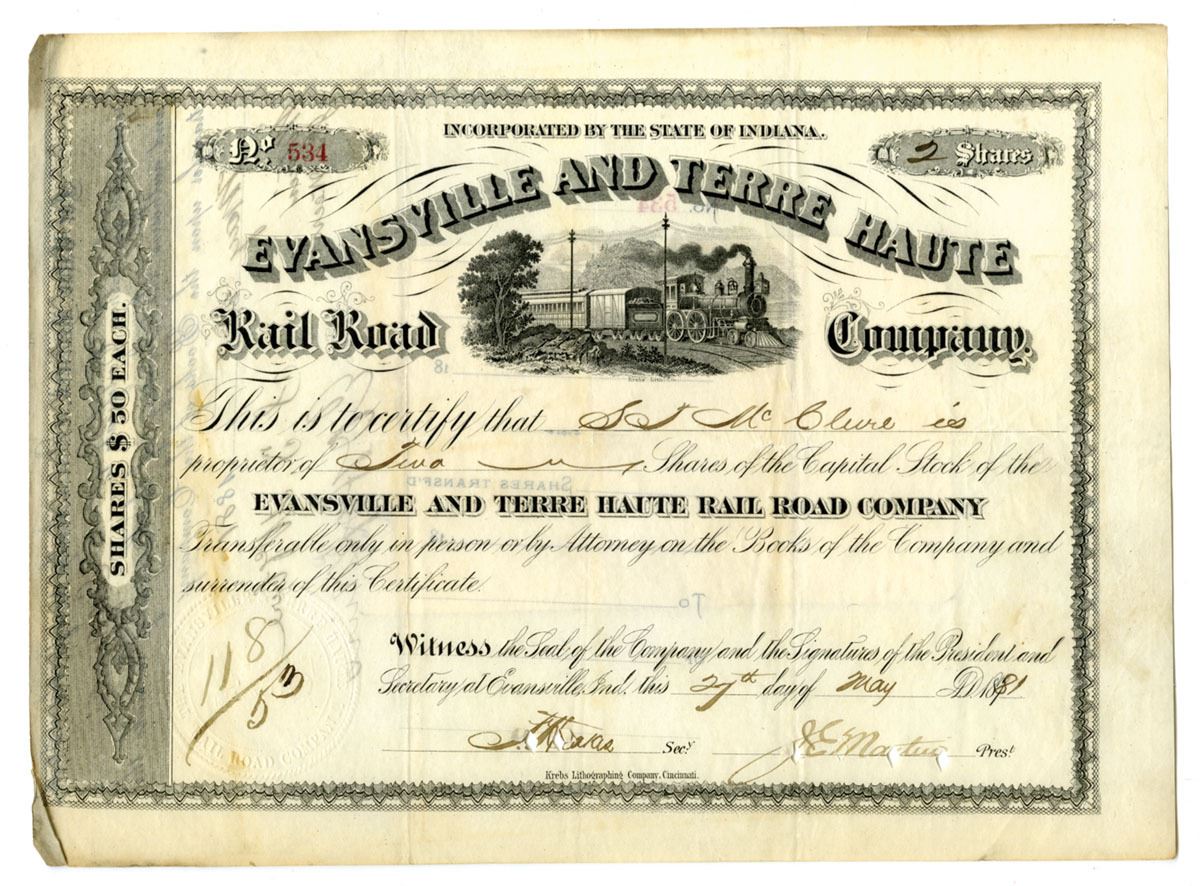 INCORPORATED BY THE STATE OF INDIANA.
No. 534
2 Shares
EVANSVILLE AND TERRE HAUTE
Rail Road Company.
SHARES $ 50 EACH.
This is to certify that S J McClure is
proprietor of Two Shares of the Capital Stock of the
EVANSVILLE AND TERRE HAUTE RAIL ROAD COMPANY
Transferable only in person or by Attorney on the Books of the Company and
surrender of this Certificate.
Witness the Seal of the Company and the Signatures of the President and
Secretary at Evansville, Ind. this 27th day of May AD 1881
Secy.
J E Martin Prest.
Krebs Lithographing Company, Cincinnati.